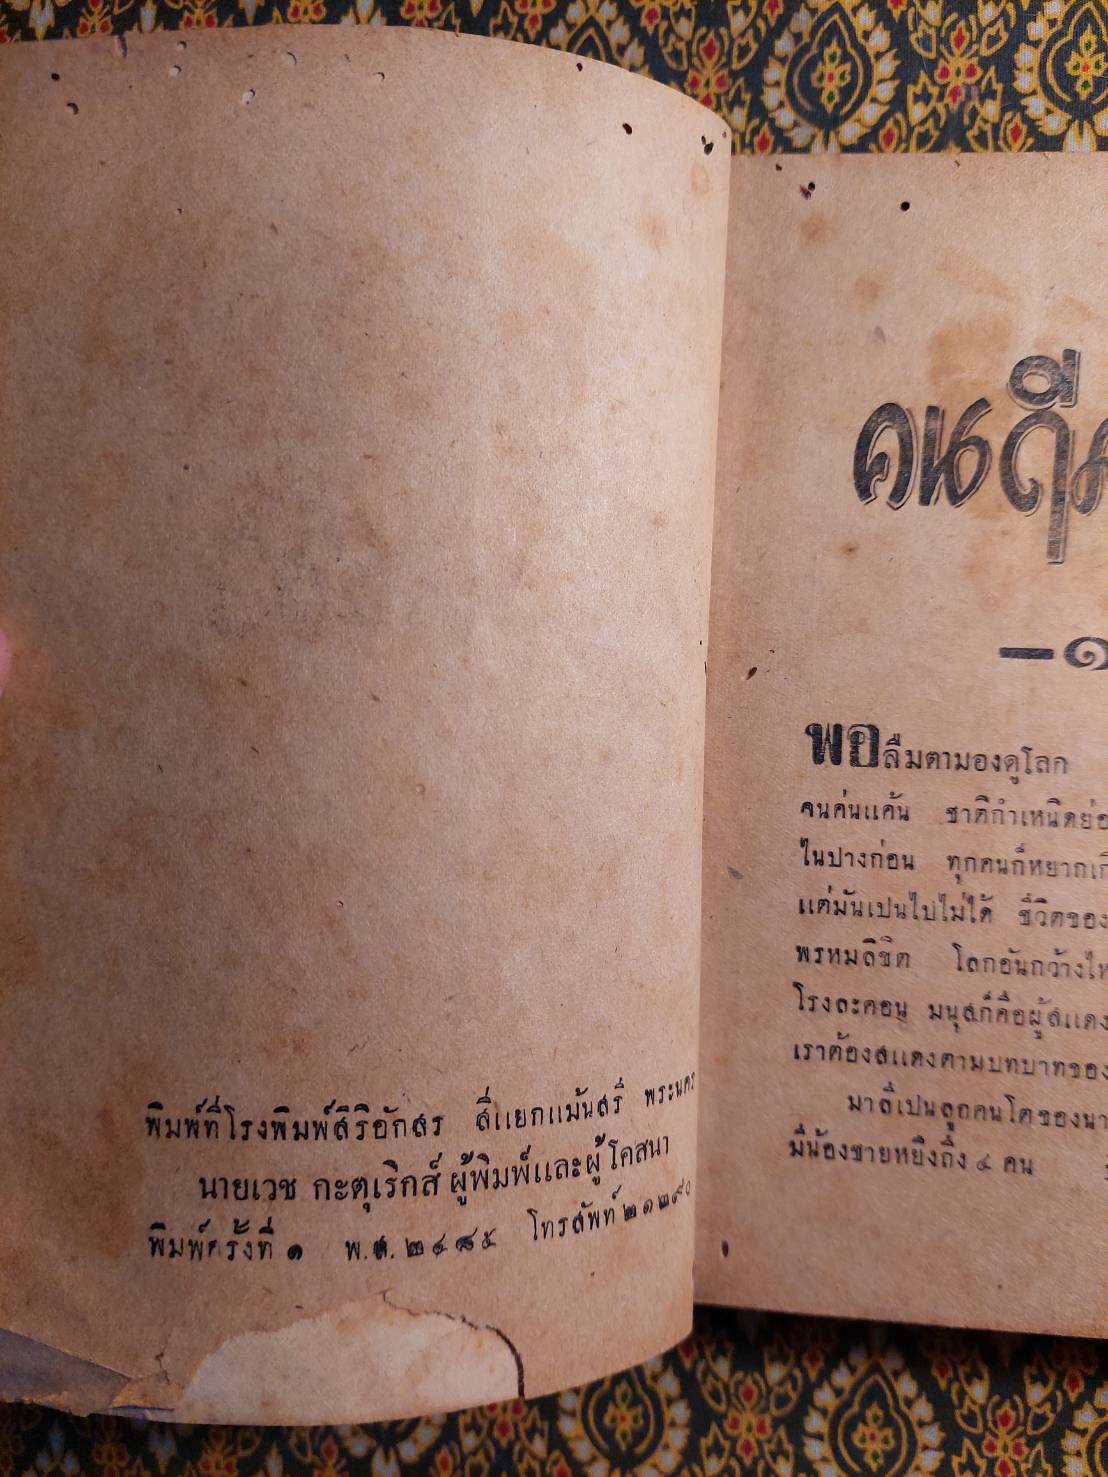 พิมพ์ที่โรงพิมพ์สิริอักสร สี่แยกแม้นสรี พระนคร
นายเวช กะตุเริกส์ ผู้พิมพ์และผู้โคสนา
พิมพ์ครั้งที่ ๑ พ.ส. ๒๔๘๕ โทรสัพท์ ๒๑๒๙๐
คนดี
—๑
พอลืมตามองดูโลก
จนค่นแค้น ชาติกำเหนิดย่อ
ไนปางก่อน ทุกคนก็หยากเกิ
แต่มันเปนไปไม่ได้ ชีวิตของ
พรหมลิขิต โลกอันกว้างไห
โรงละคอน มนุสก็คือผู้สแดง
เราต้องสแดงตามบทบาทของ
มาลีเปนลูกคนโตของนา
มีน้องชายหยิงถึง ๔ คน